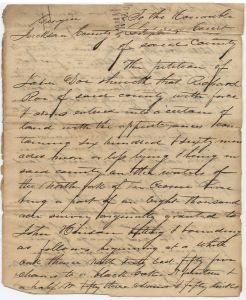 Georgia To the Honorable
Jackson County Superior Court
of said County
The petition of
John Doe sheweth that Richard
Roe of said county with force
& arms entered into a certain of
land with the appurtenances con
taining six hundred & ninety
acres more or less lying & being in
said county on the waters of
the North fork of the Oconee river
being a part of an eight thousand
acre survey originally granted to
John
as follows beginning at a White
oak thence North sixty east fifty five
chains to a black oak
a half W fifty three